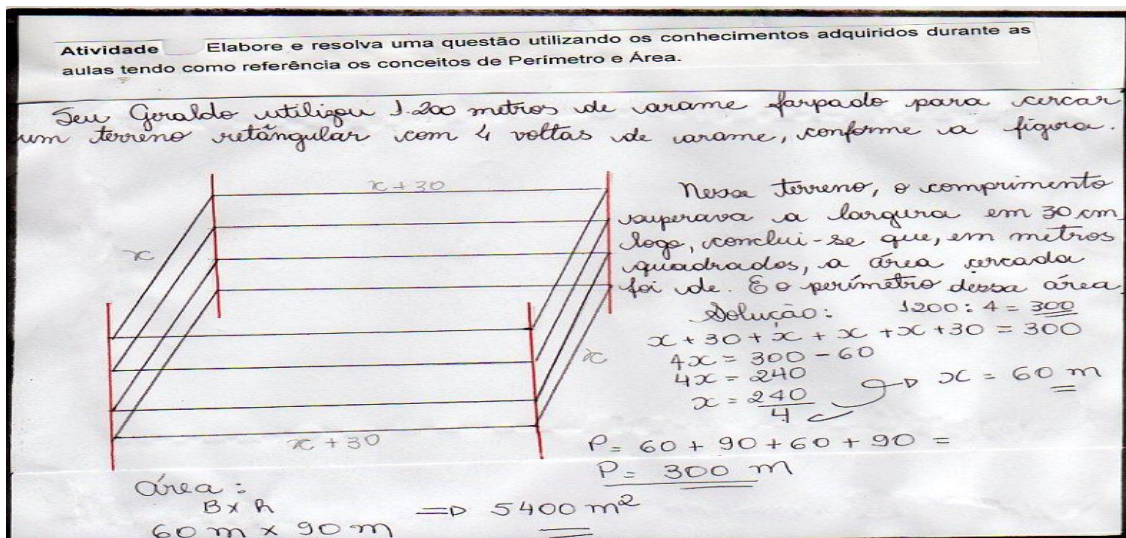 Atividade Elabore e resolva uma questão utilizando os conhecimentos adquiridos durante as
aulas tendo como referência os conceitos de Perímetro e Área.
Seu Geraldo utilizou 1.200 metros de arame farpado para cercar
um terreno retângular com 4 voltas de arame, conforme a figura.
x+30
x
x
x+30
Nesse terreno, o comprimento
superava a largura em 30 cm
logo, conclui-se que, em metros
quadrados, a área cercada
foi de. E o perímetro dessa área
Solução: 1200:4 = 300
x+30+x+x+x+30 = 300
4x = 300-60
4x = 240
x = 240/4 x = 60 m
P= 60+90+60+90 =
P= 300 m
Área:
B x h => 5400 m²
60 m x 90 m